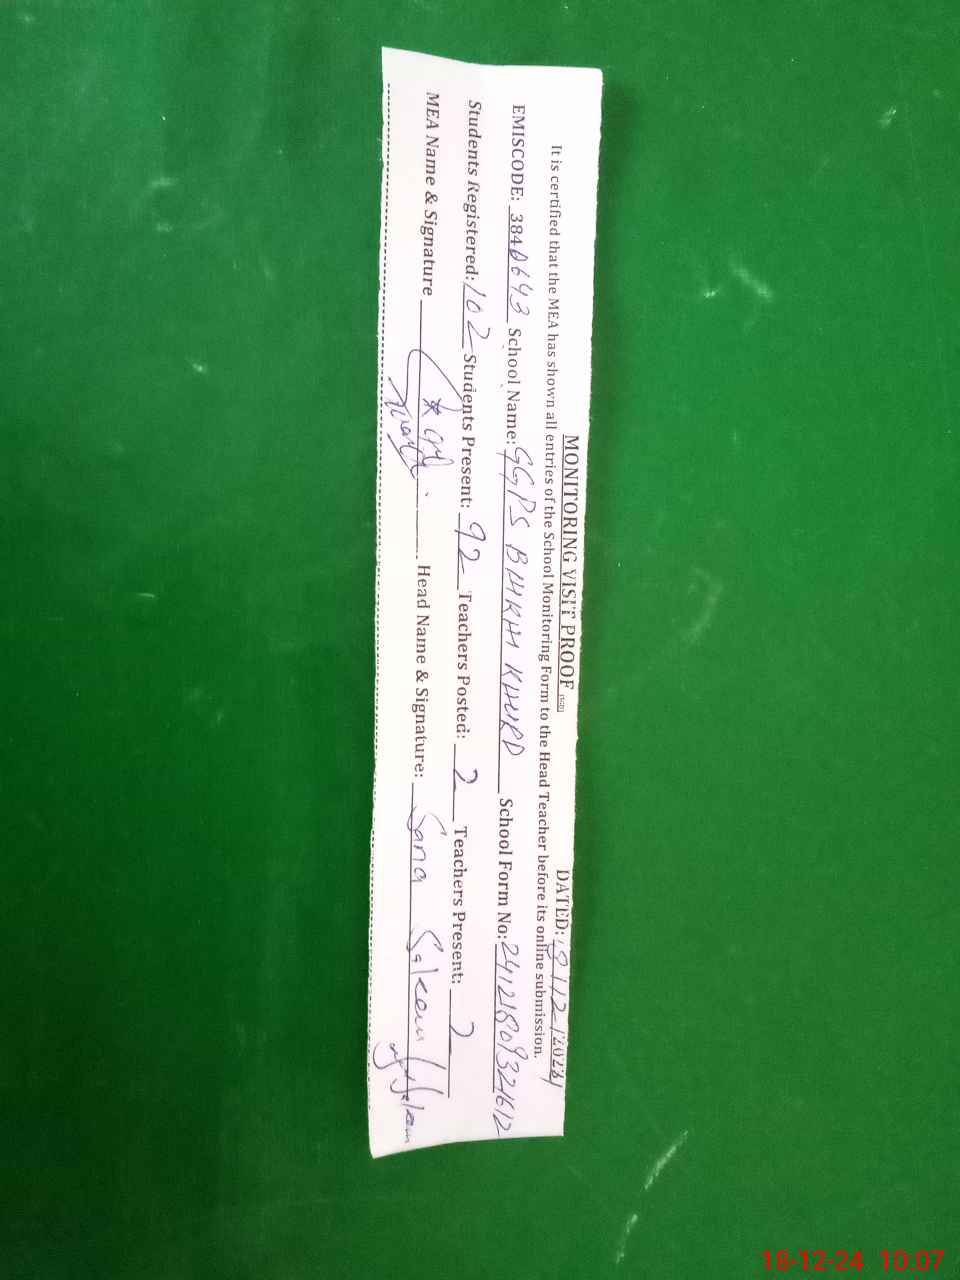 MONITORING VISIT PROOF DATED: 18/12/2024
It is certified that the MEA has shown all entries of the School Monitoring Form to the Head Teacher before its online submission.
EMISCODE: 3840643 School Name: GGPS BHKH KHURD School Form No: 24121809321612
Students Registered: 102 Students Present: 92 Teachers Posted: 2 Teachers Present: 2
MEA Name & Signature Head Name & Signature: Sana Saleem
18-12-24 10:07